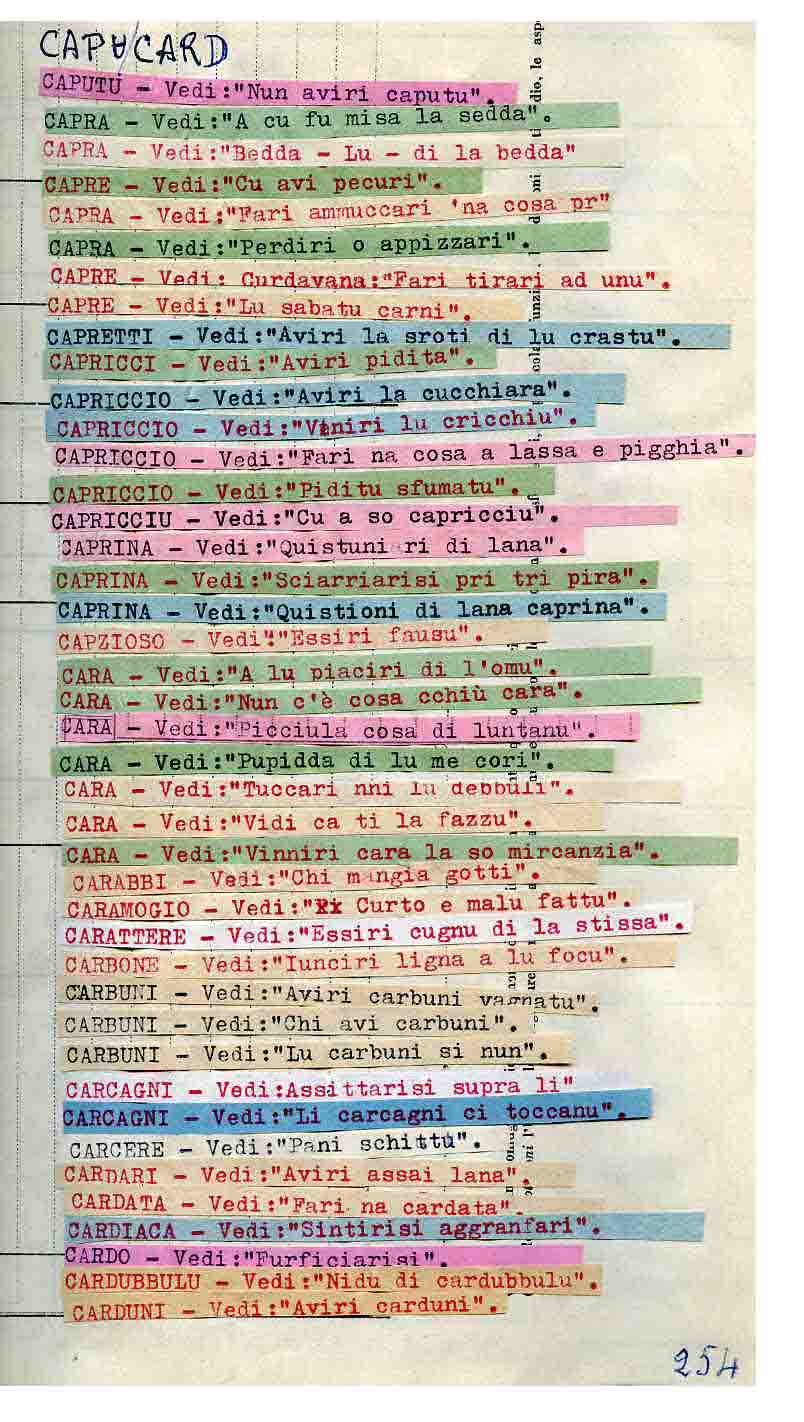 CAPUCARD
CAPUTU - Vedi:"Nun aviri caputu".
CAPRA - Vedi:"A cu fu misa la sedda".
CAPRA - Vedi:"Bedda - Lu - di la bedda"
CAPRE - Vedi:"Cu avi pecuri".
CAPRA - Vedi:"Fari ammuccari 'na cosa pr"
CAPRA - Vedi:"Perdiri o appizzari".
CAPRE - Vedi: Curdavana:"Fari tirari ad unu".
CAPRE - Vedi:"Lu sabatu carni".
CAPRETTI - Vedi:"Aviri la sroti di lu crastu".
CAPRICCI - Vedi:"Aviri pidita".
CAPRICCIO - Vedi:"Aviri la cucchiara".
CAPRICCIO - Vedi:"Viniri lu cricchiu".
CAPRICCIO - Vedi:"Fari na cosa a lassa e pigghia".
CAPRICCIO - Vedi:"Piditu sfumatu".
CAPRICCIU - Vedi:"Cu a so capricciu".
CAPRINA - Vedi:"Quistuni ri di lana".
CAPRINA - Vedi:"Sciarriarisi pri tri pira".
CAPRINA - Vedi:"Quistioni di lana caprina".
CAPZIOSO - Vedi:"Essiri fausu".
CARA - Vedi:"A lu piaciri di l'omu".
CARA - Vedi:"Nun c'è cosa cchiù cara".
CARA - Vedi:"Picciula cosa di luntanu".
CARA - Vedi:"Pupidda di lu me cori".
CARA - Vedi:"Tuccari nni lu debbuli".
CARA - Vedi:"Vidi ca ti la fazzu".
CARA - Vedi:"Vinniri cara la so mircanzia".
CARABBI - Vedi:"Chi mangia gotti".
CARAMOGIO - Vedi:" Curto e malu fattu".
CARATTERE - Vedi:"Essiri cugnu di la stissa".
CARBONE - Vedi:"Iunciri ligna a lu focu".
CARBUNI - Vedi:"Aviri carbuni vagnatu".
CARBUNI - Vedi:"Chi avi carbuni".
CARBUNI - Vedi:"Lu carbuni si nun".
CARCAGNI - Vedi:Assittarisi supra li"
CARCAGNI - Vedi:"Li carcagni ci toccanu".
CARCERE - Vedi:"Pani schittu".
CARDARI - Vedi:"Aviri assai lana".
CARDATA - Vedi:"Fari na cardata".
CARDIACA - Vedi:"Sintirisi aggranfari".
CARDO - Vedi:"Furficiarisi".
CARDUBBULU - Vedi:"Nidu di cardubbulu".
CARDUNI - Vedi:"Aviri carduni".
254